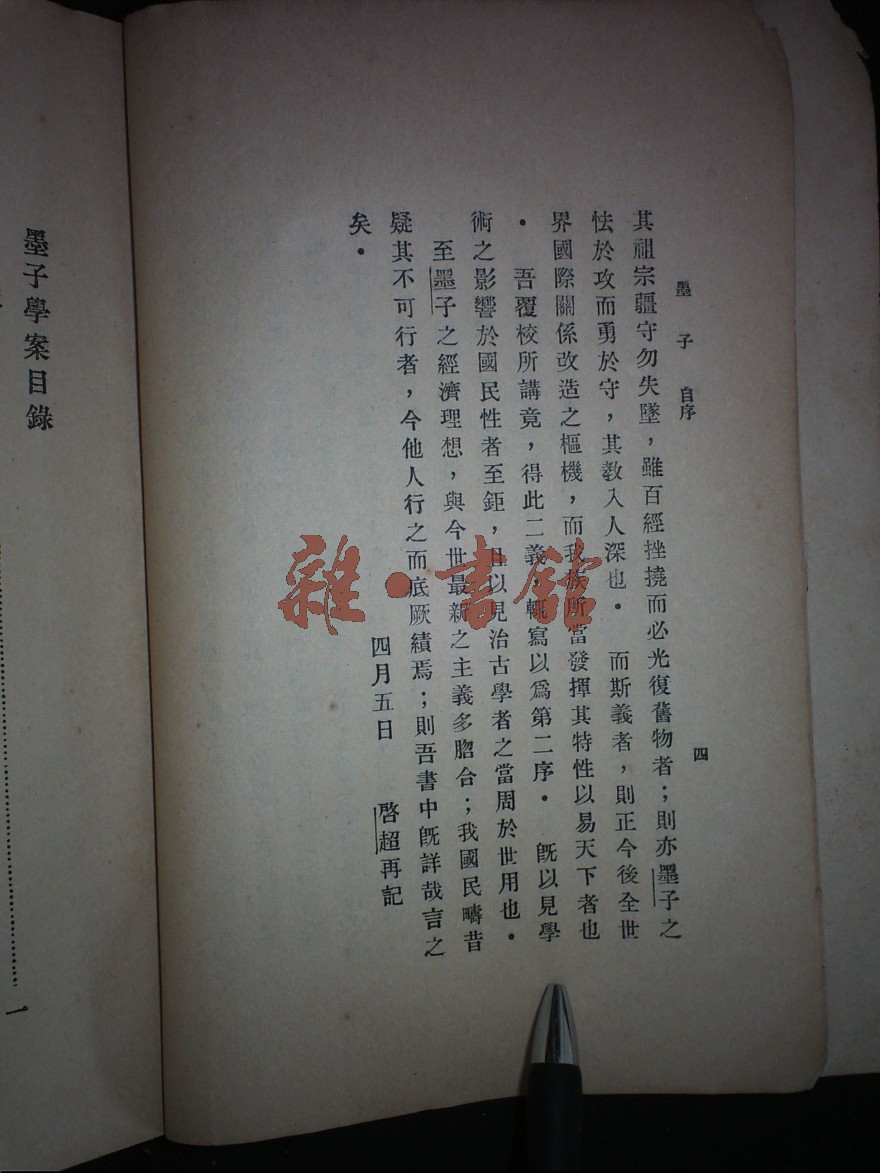 墨子 自序 四
其祖宗疆守勿失墜，雖百經挫撓而必光復舊物者；則亦墨子之
怯於攻而勇於守，其教入人深也．　而斯義者，則正今後全世
界國際關係改造之樞機，而我族所當發揮其特性以易天下者也
．　吾覆校所講竟，得此二義，輒寫以爲第二序．　旣以見學
術之影響於國民性者至鉅，且以見治古學者之當周於世用也．
至墨子之經濟理想，與今世最新之主義多脗合；我國民疇昔
疑其不可行者，今他人行之而底厥績焉；則吾書中旣詳哉言之
矣．
四月五日　啓超再記
墨子學案目錄
一
雜·書館